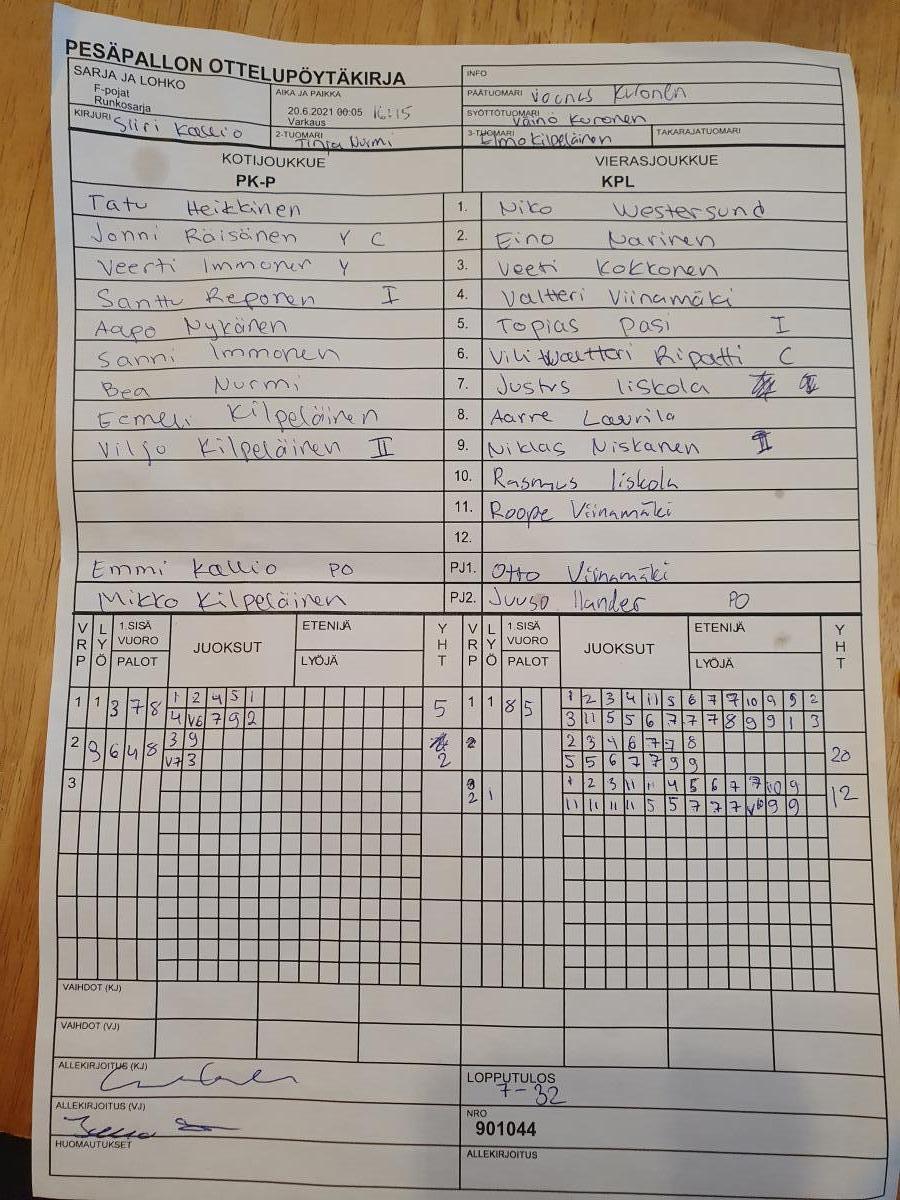 PESÄPALLON OTTELUPÖYTÄKIRJA
SARJA JA LOHKO
F-pojat
Runkosarja
AIKA JA PAIKKA
20.6.2021 00:05 16:15
Varkaus
INFO
PÄÄTUOMARI
SYÖTTÖTUOMARI Väinö Koronen
KIRJURI Siiri Kallio
2-TUOMARI Tinja Nurmi
3-TUOMARI Elmo Kilpeläinen
TAKARAJATUOMARI
KOTIJOUKKUE
PK-P
VIERASJOUKKUE
KPL
Tatu Heikkinen 1. Niko Westersund
Jonni Räisänen Y C 2. Eino Narinen
Veerti Immonen Y 3. Veeti Kokkonen
Santtu Reponen I 4. Valtteri Viinamäki
Aapo Nykänen 5. Topias Pasi I
Sanni Immonen 6. Vili Waltteri Ripatti C
Bea Nurmi 7. Justus Iiskola
Eemeli Kilpeläinen 8. Aarre Laurila
Viljo Kilpeläinen II 9. Niklas Niskanen II
10. Rasmus Iiskola
11. Roope Viinamäki
12.
Emmi Kallio PO PJ1. Otto Viinamäki
Mikko Kilpeläinen PJ2. Juuso Ilander PO
VRP LYÖ 1.SISÄ VUORO PALOT JUOKSUT ETENIJÄ LYÖJÄ YHT VRP LYÖ 1.SISÄ VUORO PALOT JUOKSUT ETENIJÄ LYÖJÄ YHT
1 1 3 7 8 1 2 4 5 1 5 1 1 8 5 1 2 3 4 11 5 6 7 7 10 9 9 2
4 V6 7 9 2 3 11 5 5 6 7 7 7 8 9 9 1 3
2 9 6 4 8 3 9 2 2 2 3 4 6 7 7 8 20
V7 3 5 5 6 7 7 9 9
3 2 1 1 2 3 11 11 4 5 6 7 7 10 9 12
11 11 11 11 5 5 7 7 7 V6 9 9
VAIHDOT (KJ)
VAIHDOT (VJ)
ALLEKIRJOITUS (KJ)
LOPPUTULOS
7-32
ALLEKIRJOITUS (VJ)
NRO
901044
HUOMAUTUKSET
ALLEKIRJOITUS